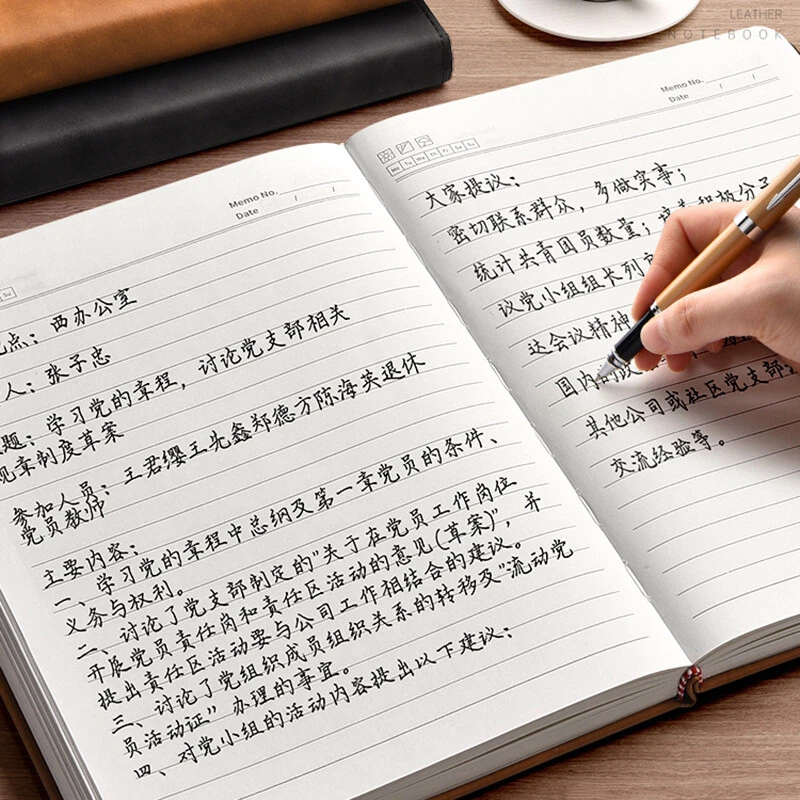 LEATHER
NOTEBOOK
Memo No.
Date / /
Su
点：西办公室
人：张子忠
题：学习党的章程，讨论党支部相关
规章制度草案
参加人员：王君缨王先鑫郑德方陈海英退休
党员教师
主要内容：
一、学习党的章程中总纲及第一章党员的条件、
义务与权利。
二、讨论了党支部制定的"关于在党员工作岗位
开展党员责任岗和责任区活动的意见(草案)"，并
提出责任区活动要与公司工作相结合的建议。
三、讨论了党组织成员组织关系的转移及"流动党
员活动证"办理的事宜。
四、对党小组的活动内容提出以下建议：
Memo No.
Date / /
Mo Tu We Th Fr Sa Su
大家提议：
密切联系群众，多做实事；
统计共青团员数量；培养积极分子
议党小组组长列席
达会议精神
国内的
其他公司或社区党支部
交流经验等。